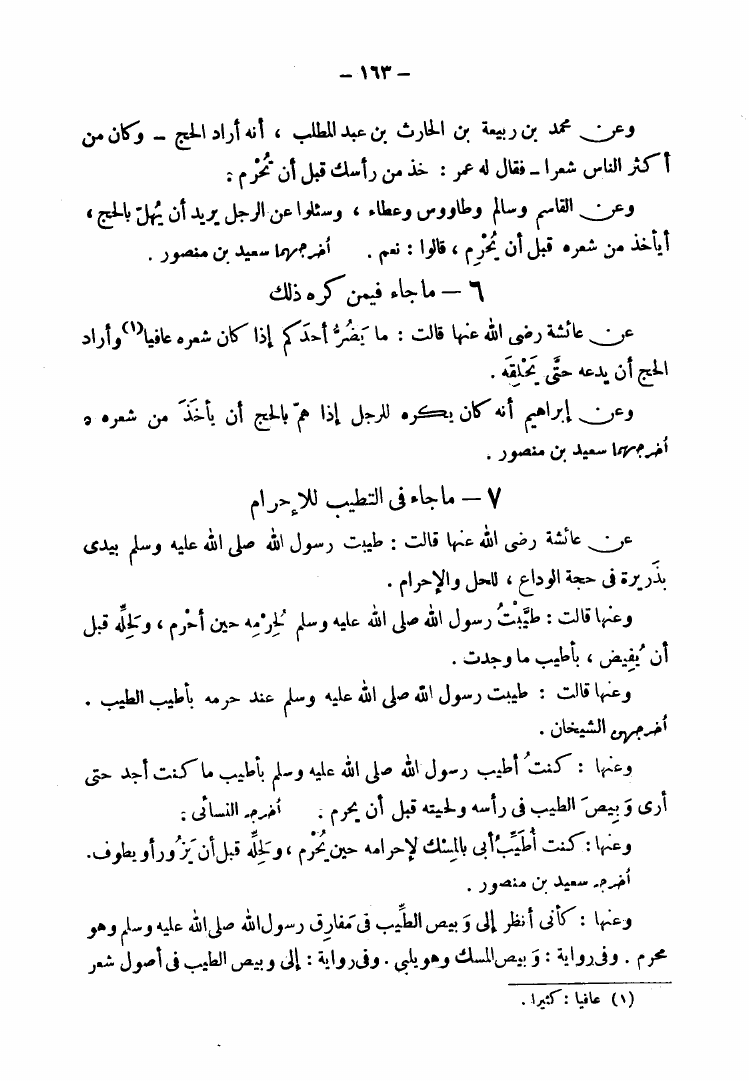 – ١٦٣ –
وعن محمد بن ربيعة بن الحارث بن عبد المطلب ، أنه أراد الحج – وكان من
أكثر الناس شعرا – فقال له عمر : خذ من رأسك قبل أن تُحْرم .
وعن القاسم وسالم وطاووس وعطاء ، وسئلوا عن الرجل يريد أن يُهلّ بالحج ،
أيأخذ من شعره قبل أن يُحْرِم ، قالوا : نعم . أخرجهما سعيد بن منصور .
٦ – ما جاء فيمن كره ذلك
عن عائشة رضى الله عنها قالت : ما يَضُرُّ أحدَكم إذا كان شعره عافيا(١) وأراد
الحج أن يدعه حتَّى يَحْلِقَه .
وعن إبراهيم أنه كان يكره للرجل إذا همّ بالحج أن يأخَذَ من شعره ه
أخرجهما سعيد بن منصور .
٧ – ما جاء فى التطيب للإحرام
عن عائشة رضى الله عنها قالت : طيبت رسول الله صلى الله عليه وسلم بيدى
بذَريرة فى حجة الوداع ، للحل والإحرام .
وعنها قالت : طيَّبْتُ رسول الله صلى الله عليه وسلم لحِرْمِه حين أحْرم ، ولحِلِّه قبل
أن يُفيض ، بأطيب ما وجدت .
وعنها قالت : طيبت رسول الله صلى الله عليه وسلم عند حرمه بأطيب الطيب .
أخرجهن الشيخان .
وعنها : كنتُ أطيب رسول الله صلى الله عليه وسلم بأطيب ما كنت أجد حتى
أرى وَبِيصَ الطيب فى رأسه ولحيته قبل أن يحرم : أخرجه النسائى :
وعنها : كنت أُطَيِّبُ أبى بالمِسْك لإحرامه حين يُحْرم ، ولحِلِّه قبل أن يَزُور أو يطوف.
أخرجه سعيد بن منصور .
وعنها : كأنى أنظر إلى وَبيص الطِّيب فى مَفارِق رسول الله صلى الله عليه وسلم وهو
محرم . وفى رواية : وَبيص المسك وهو يلبى . وفى رواية : إلى وبيص الطيب فى أصول شعر
(١) عافيا : كثيرا .